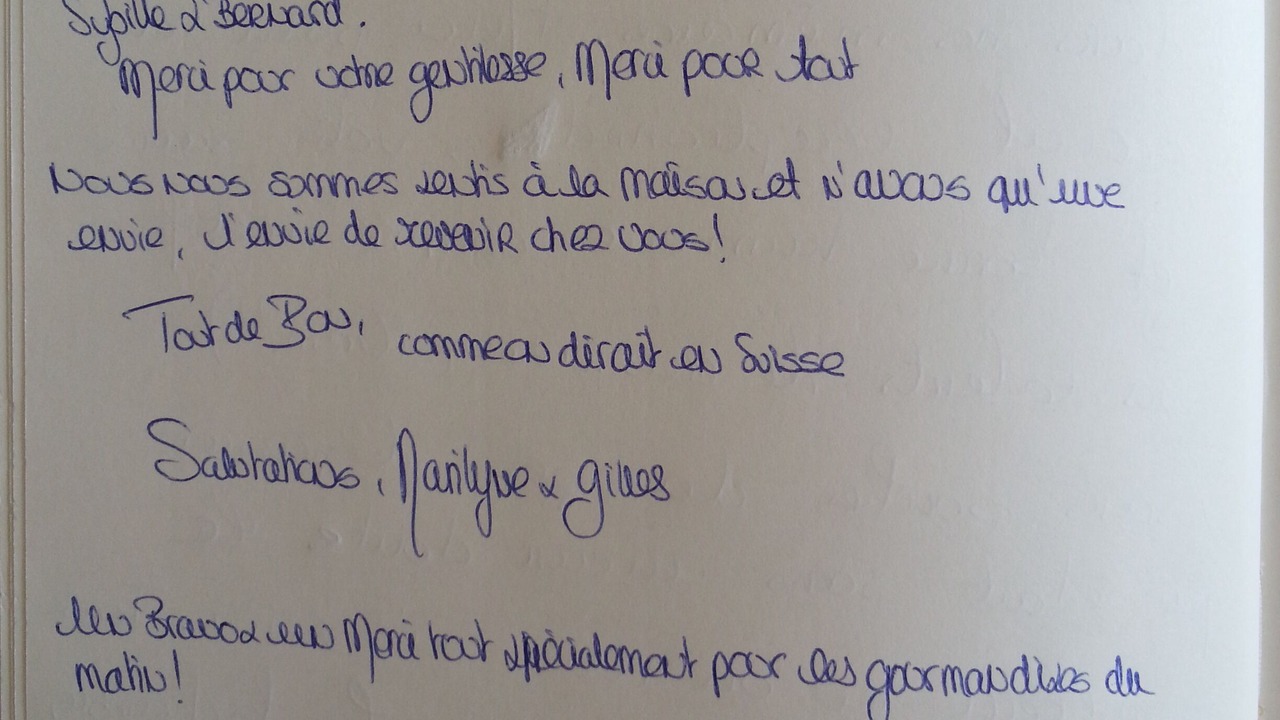 Sybille & Bernard.
Merci pour votre gentilesse, Merci pour tout
Nous nous sommes sentis à la maison et n'avons qu'une
envie, l'envie de revenir chez vous!
Tout de Bon, comme on dirait en Suisse
Salutations, Marilyne & Gilles
Un Bravo & un Merci tout spécialement pour les gourmandises du
matin!